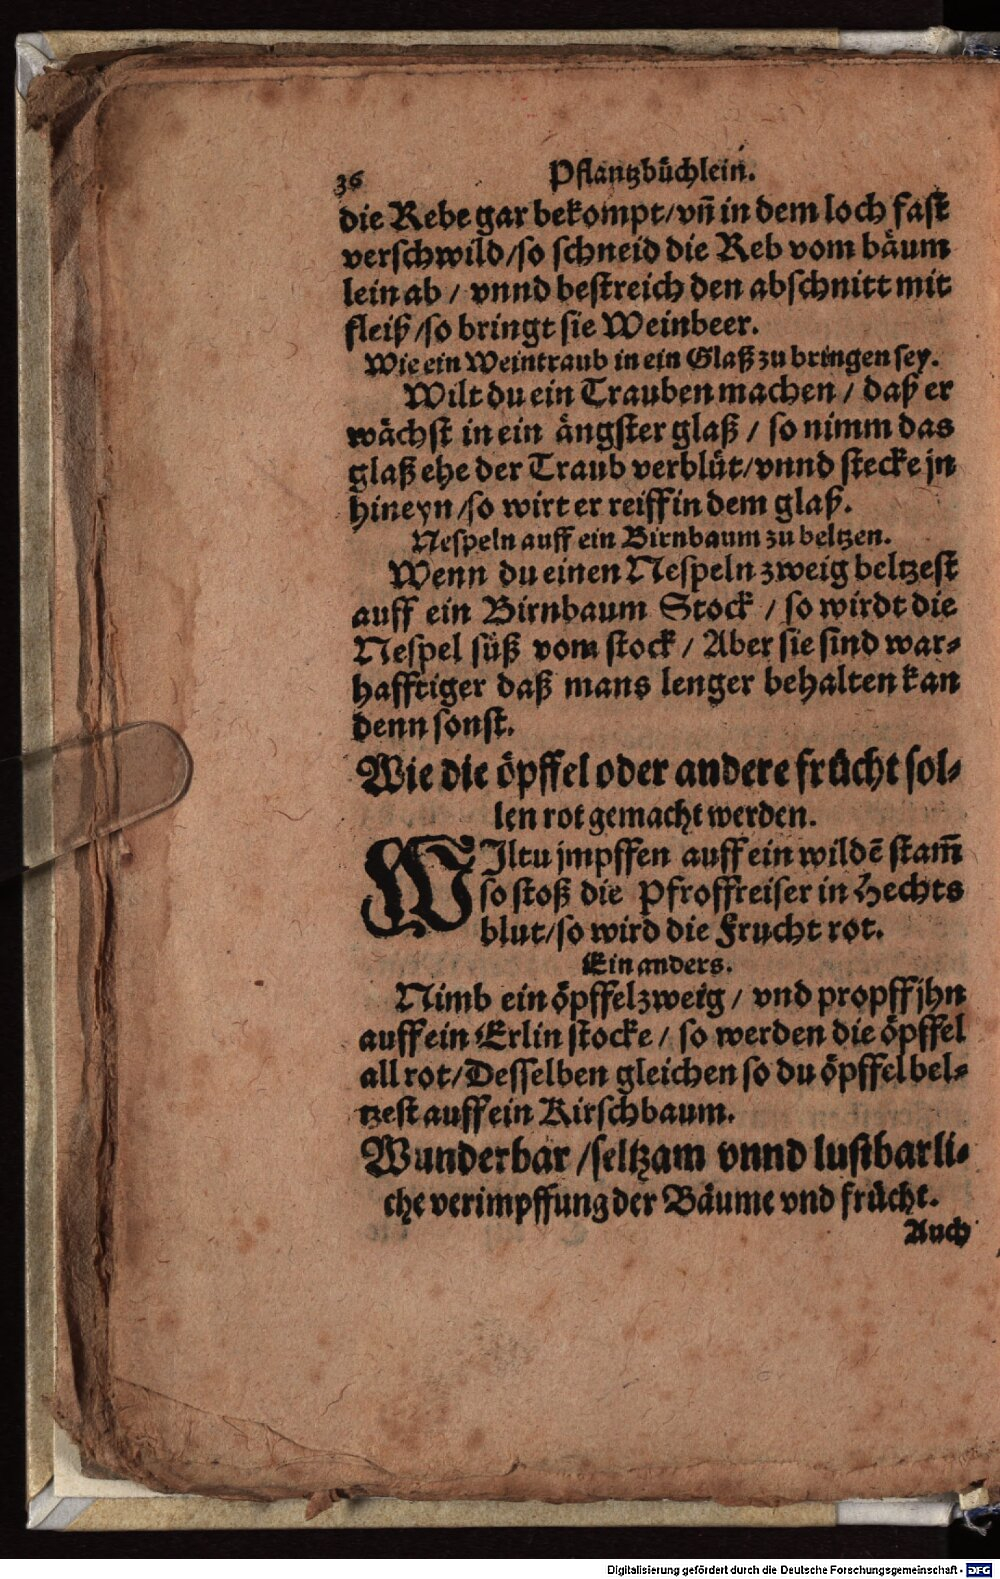 36 Pflantzbüchlein.
die Rebe gar bekompt/vñ in dem loch fast
verschwild/so schneid die Reb vom bäum
lein ab / vnnd bestreich den abschnitt mit
fleiß/so bringt sie Weinbeer.
Wie ein Weintraub in ein Glaß zu bringen sey.
Wilt du ein Trauben machen / daß er
wächst in ein ängster glaß / so nimm das
glaß ehe der Traub verblüt/vnnd stecke jn
hineyn/so wirt er reiff in dem glaß.
Nespeln auff ein Birnbaum zu beltzen.
Wenn du einen Nespeln zweig beltzest
auff ein Birnbaum Stock / so wirdt die
Nespel süß vom stock / Aber sie sind war-
hafftiger daß mans lenger behalten kan
denn sonst.
Wie die öpffel oder andere frücht sol-
len rot gemacht werden.
WIltu jmpffen auff ein wildē stam̄
so stoß die Pfroffreiser in Hechts
blut/so wird die Frucht rot.
Ein anders.
Nimb ein öpffelzweig / vnd propff jhn
auff ein Erlin stocke / so werden die öpffel
all rot/Desselben gleichen so du öpffel bel-
tzest auff ein Kirschbaum.
Wunderbar/seltzam vnnd lustbarli-
che verimpffung der Bäume vnd frücht.
Auch
Digitalisierung gefördert durch die Deutsche Forschungsgemeinschaft - DFG